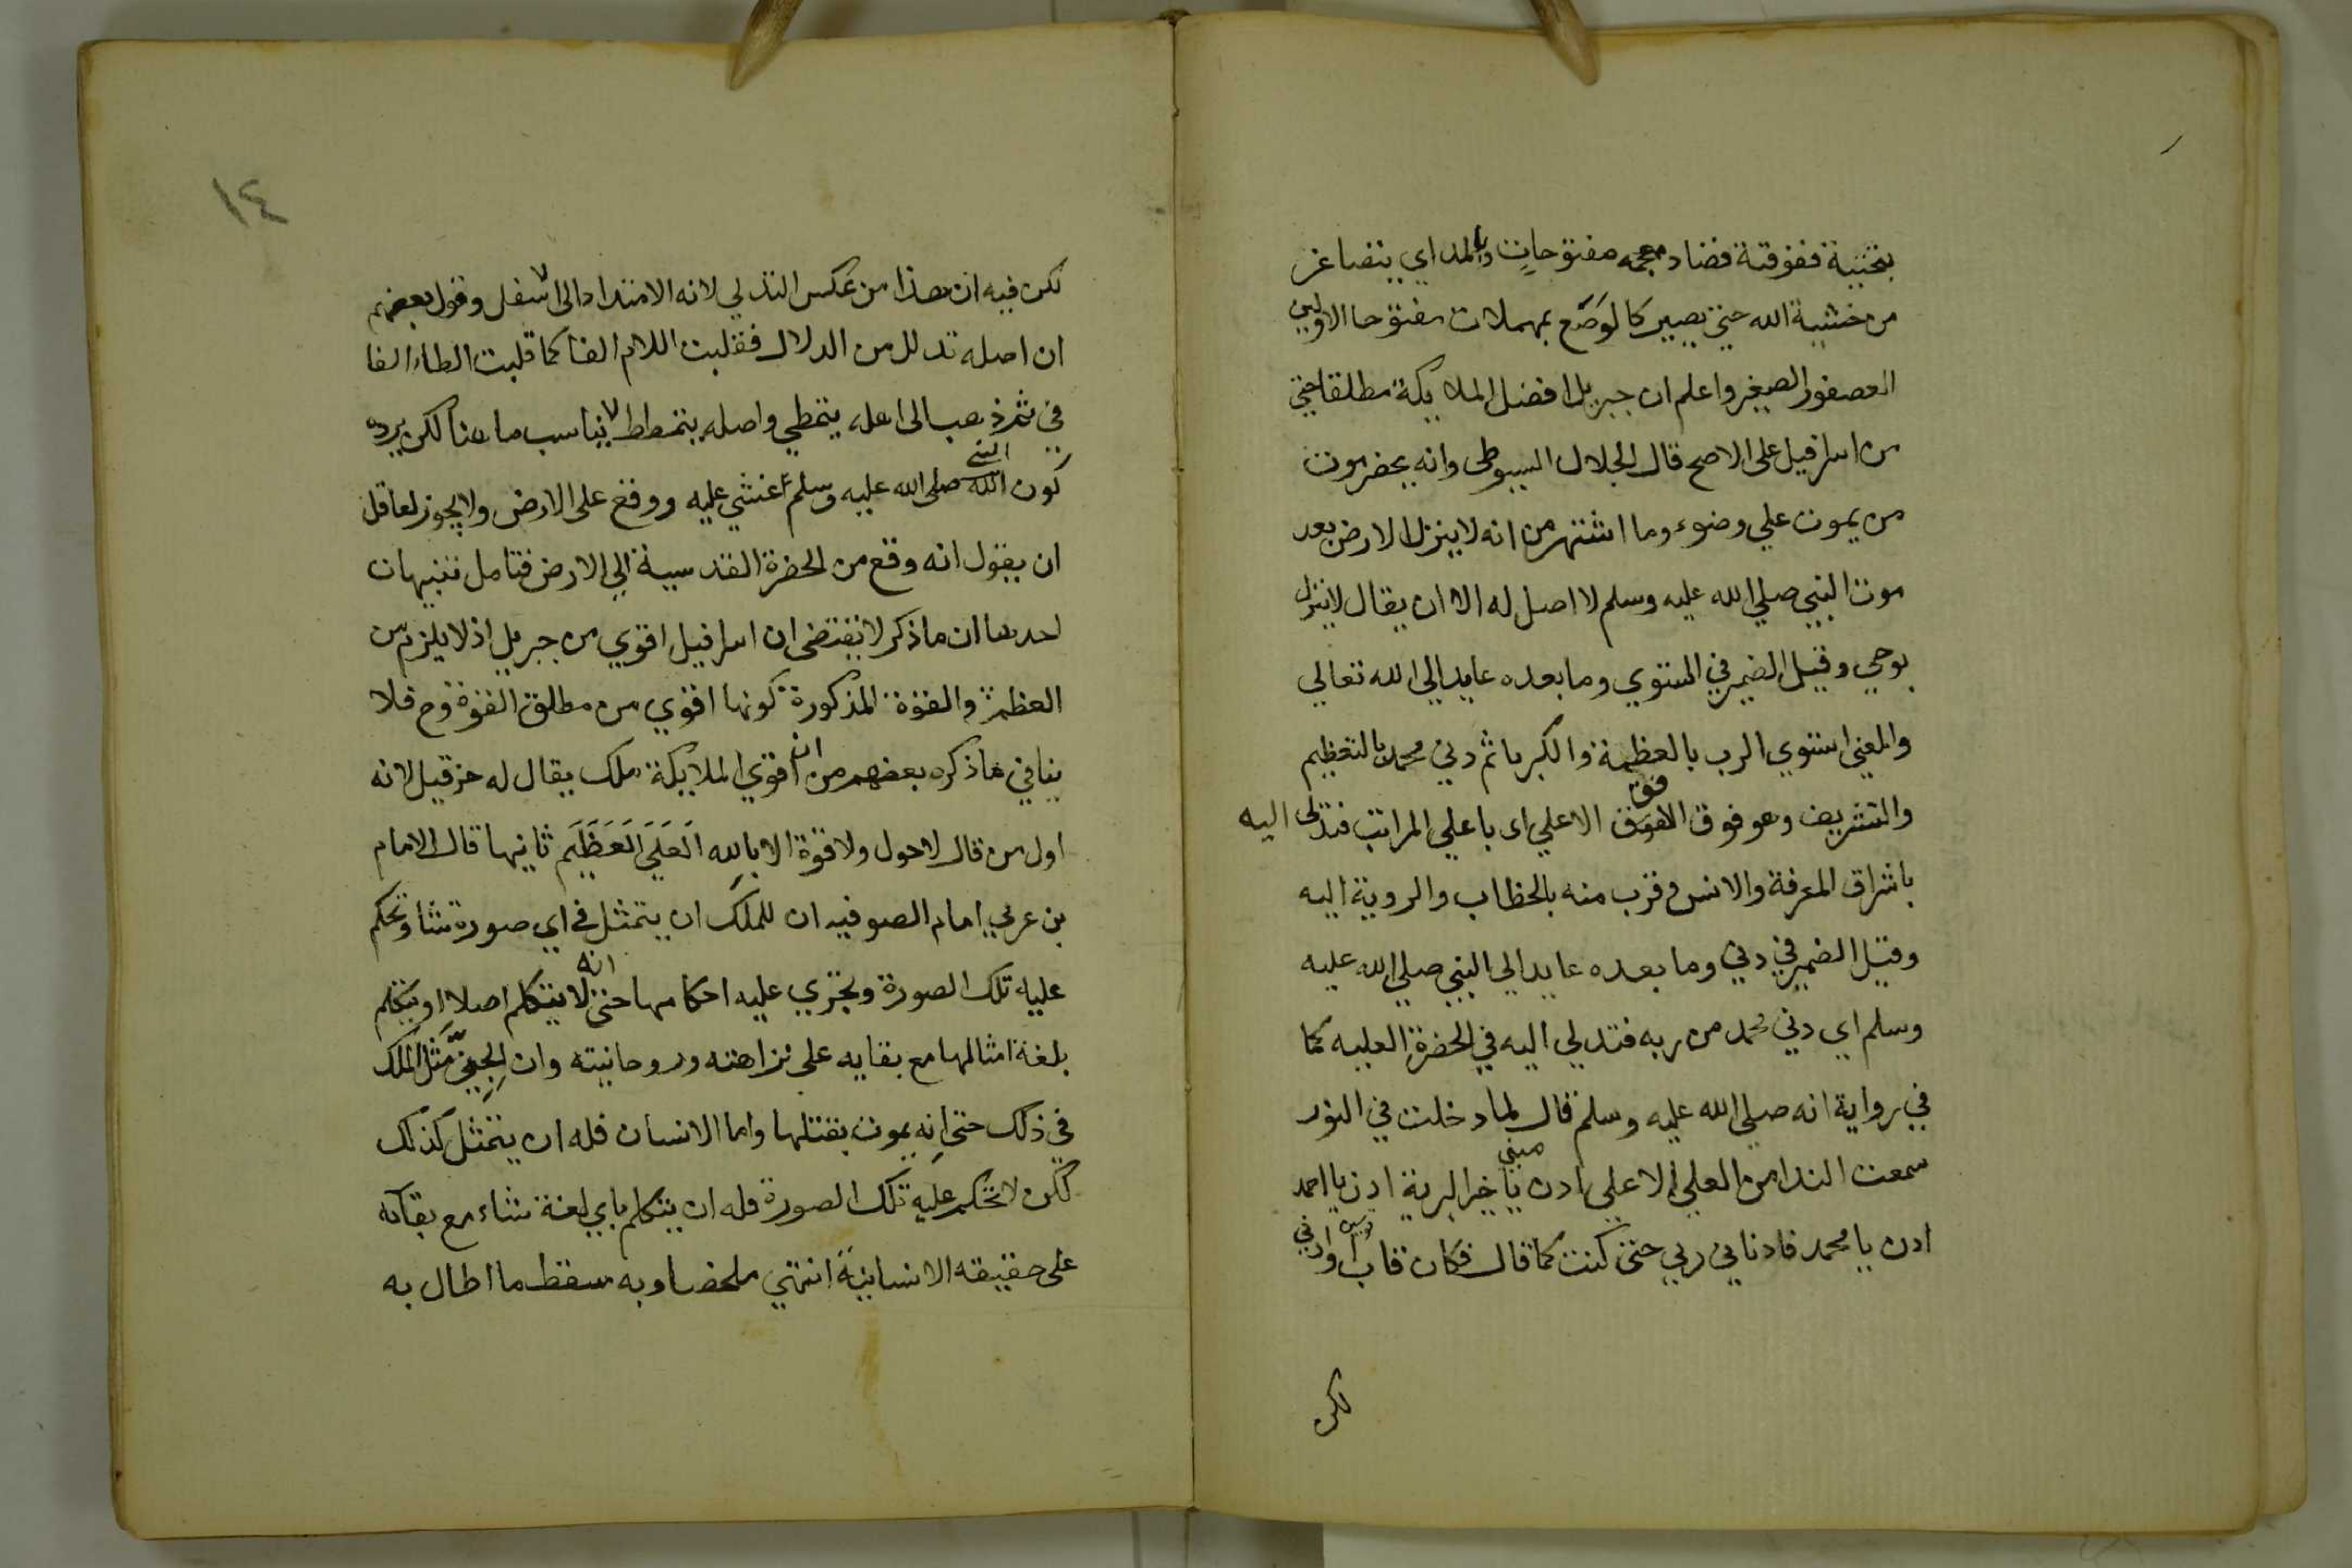 بتحتية ففوقية فضاد معجمه مفتوحات وبالمد اي يتصاغر
من خشية الله حتى يصير كالوصع بمهملات مفتوحا الاولين
العصفور الصغير واعلم ان جبريل افضل الملايكة مطلقا حتي
من اسرافيل على الاصح قال الجلال السيوطى وانه يحضر موت
من يموت علي وضوء وما اشتهر من انه لا ينزل الارض بعد
موت النبي صلي الله عليه وسلم لا اصل له الا ان يقال لا ينزل
بوحي وقيل الضمير في استوي وما بعده عايد الي الله تعالي
والمعني استوي الرب بالعظمة والكبريا ثم دني محمد بالتعظيم
والتشريف وهو فوق الافق الاعلي اى باعلي المراتب فتدلى اليه
باشراق المعرفة والانس وقرب منه بالخطاب والروية اليه
وقيل الضمير في دني وما بعده عايد الي النبي صلي الله عليه
وسلم اي دني محمد من ربه فتدلي اليه في الحضرة العليه كما
في رواية انه صلي الله عليه وسلم قال لما دخلت في النور
سمعت الندا من العلي الاعلي ادن مني يا خير البرية ادن يا احمد
ادن يا محمد فادناني ربي حتى كنت كما قال فكان قاب قوسين او ادني
لكن
١٤
لكن فيه ان هذا من عكس التدلي لانه الامتداد الى اسفل وقول بعضهم
ان اصله تدلل من الدلال فقلبت اللام الفا كما قلبت الطاء الفا
في ثم ذهب الى اهله يتمطي واصله يتمطط لا يناسب ما هنا لكن يرده
كون النبي صلى الله عليه وسلم اغشي عليه ووقع على الارض ولا يجوز لعاقل
ان يقول انه وقع من الحضرة القدسية الي الارض فتامل تنبيهات
احدها ان ما ذكر لا يقتضى ان اسرافيل اقوي من جبريل اذ لا يلزم من
العظم والقوة المذكورة كونها اقوي من مطلق القوة وح فلا
ينافي ما ذكره بعضهم من ان اقوي الملايكة ملك يقال له حزقيل لانه
اول من قال لا حول ولا قوة الا بالله العلي العظيم ثانيها قال الامام
بن عربي امام الصوفيه ان للملك ان يتمثل في اي صورة شا وتحكم
عليه تلك الصورة وتجري عليه احكامها حتى انه لا يتكلم اصلا او يتكلم
بلغة امثالها مع بقايه على نزاهته وروحانيته وان الجني مثل الملك
في ذلك حتى انه يموت بقتلها واما الانسان فله ان يتمثل كذلك
لكن لا تحكم عليه تلك الصورة فله ان يتكلم باي لغة شاء مع بقائه
على حقيقته الانسانية انتهي ملخصا وبه سقط ما اطال به